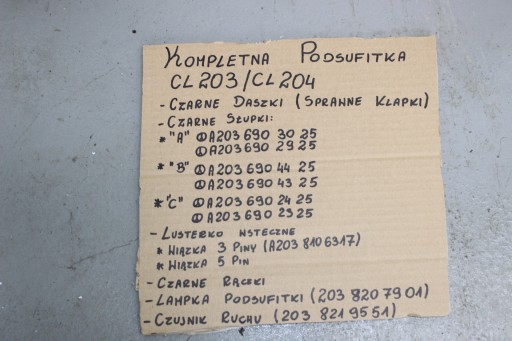 KOMPLETNA PODSUFITKA
CL203/CL204
- CZARNE DASZKI (SPRAWNE KLAPKI)
- CZARNE SŁUPKI:
* "A" A203 690 30 25
A203 690 29 25
* "B" A203 690 44 25
A203 690 43 25
* "C" A203 690 24 25
A203 690 23 25
- LUSTERKO WSTECZNE
* WIĄZKA 3 PINY (A203 810 6317)
* WIĄZKA 5 PIN
- CZARNE RĄCZKI
- LAMPKA PODSUFITKI (203 820 79 01)
- CZUJNIK RUCHU (203 821 95 51)